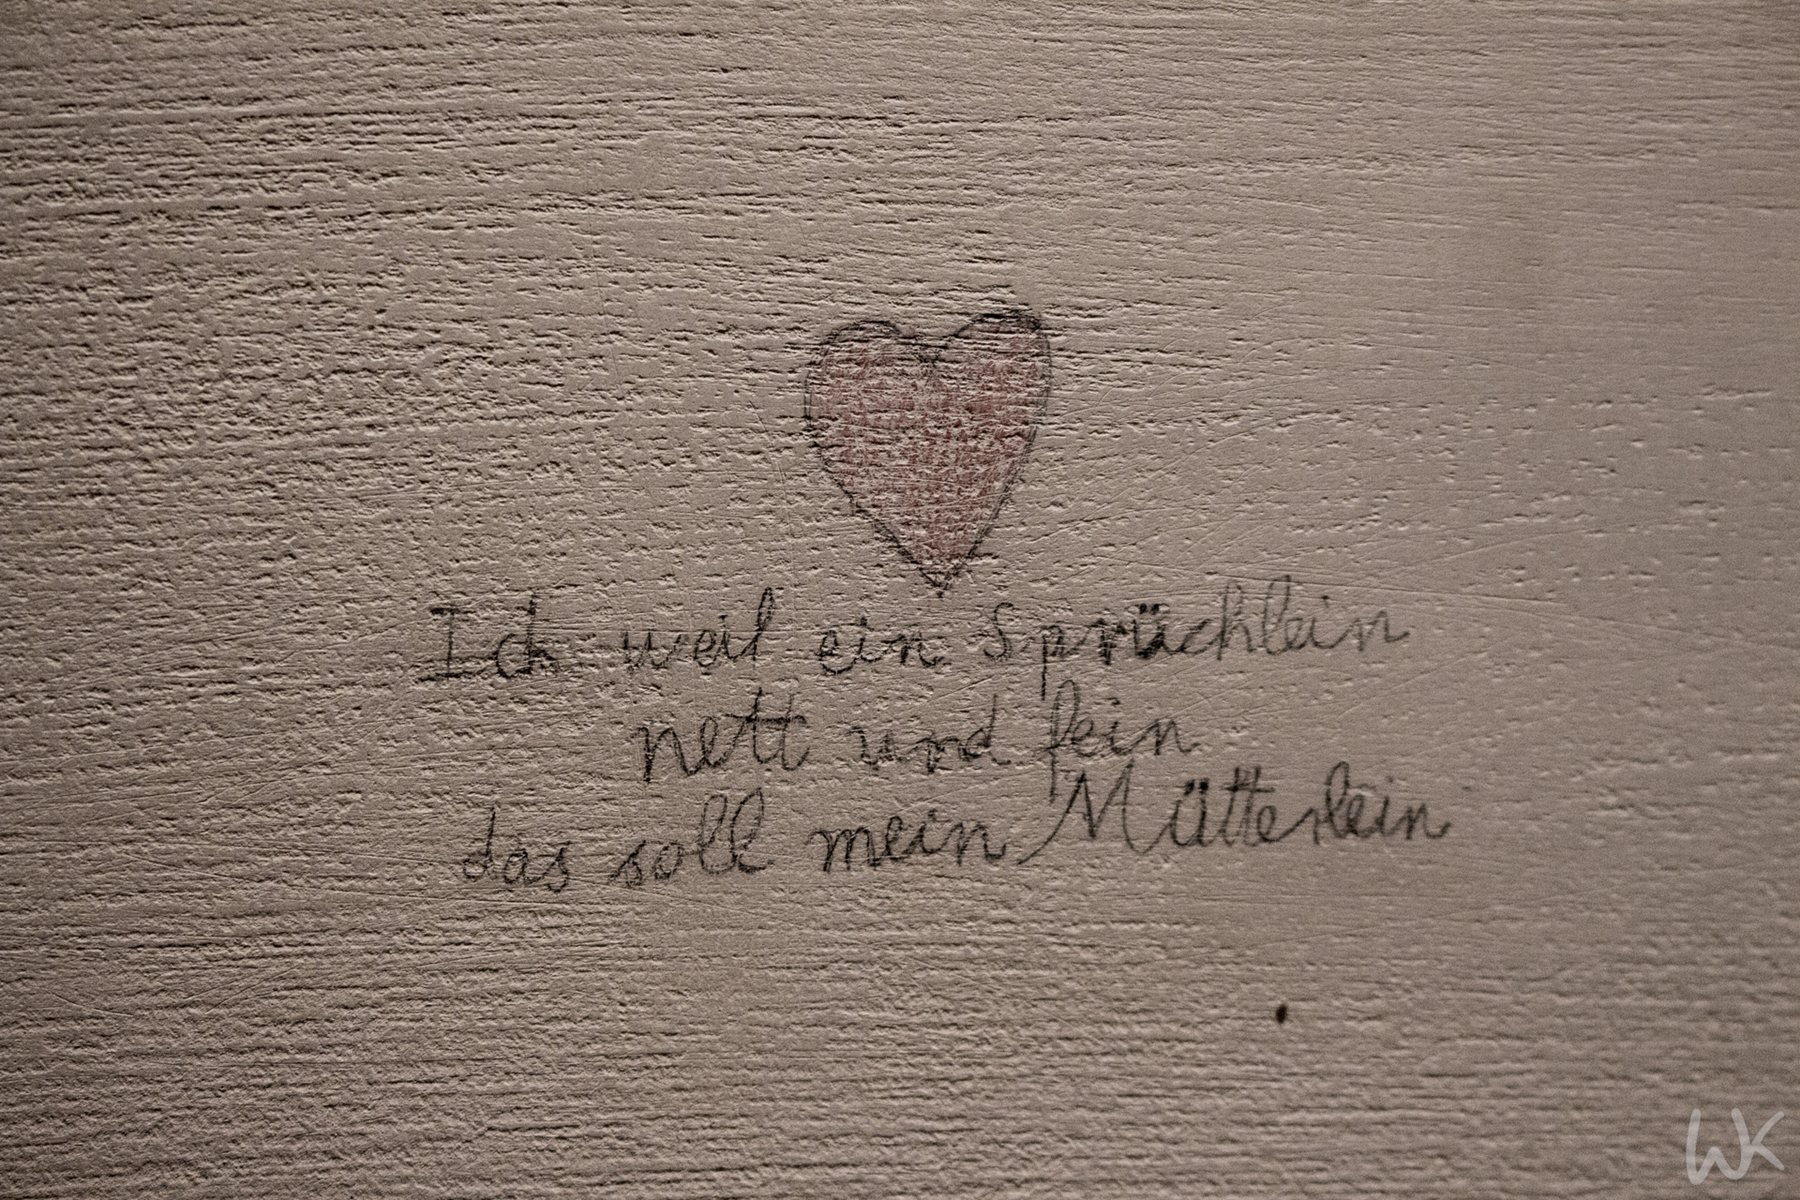 Ich weil ein Sprüchlein
nett und fein
das soll mein Mütterlein
WK